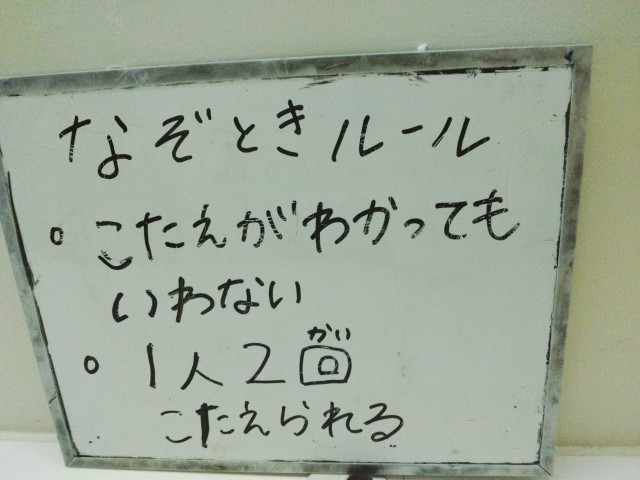 なぞときルール
。こたえがわかっても
いわない
。1人2回
かい
こたえられる